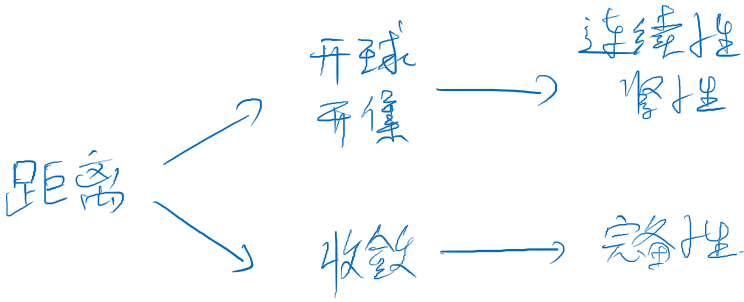 距离
开球
开集
连续性
紧性
收敛
完备性